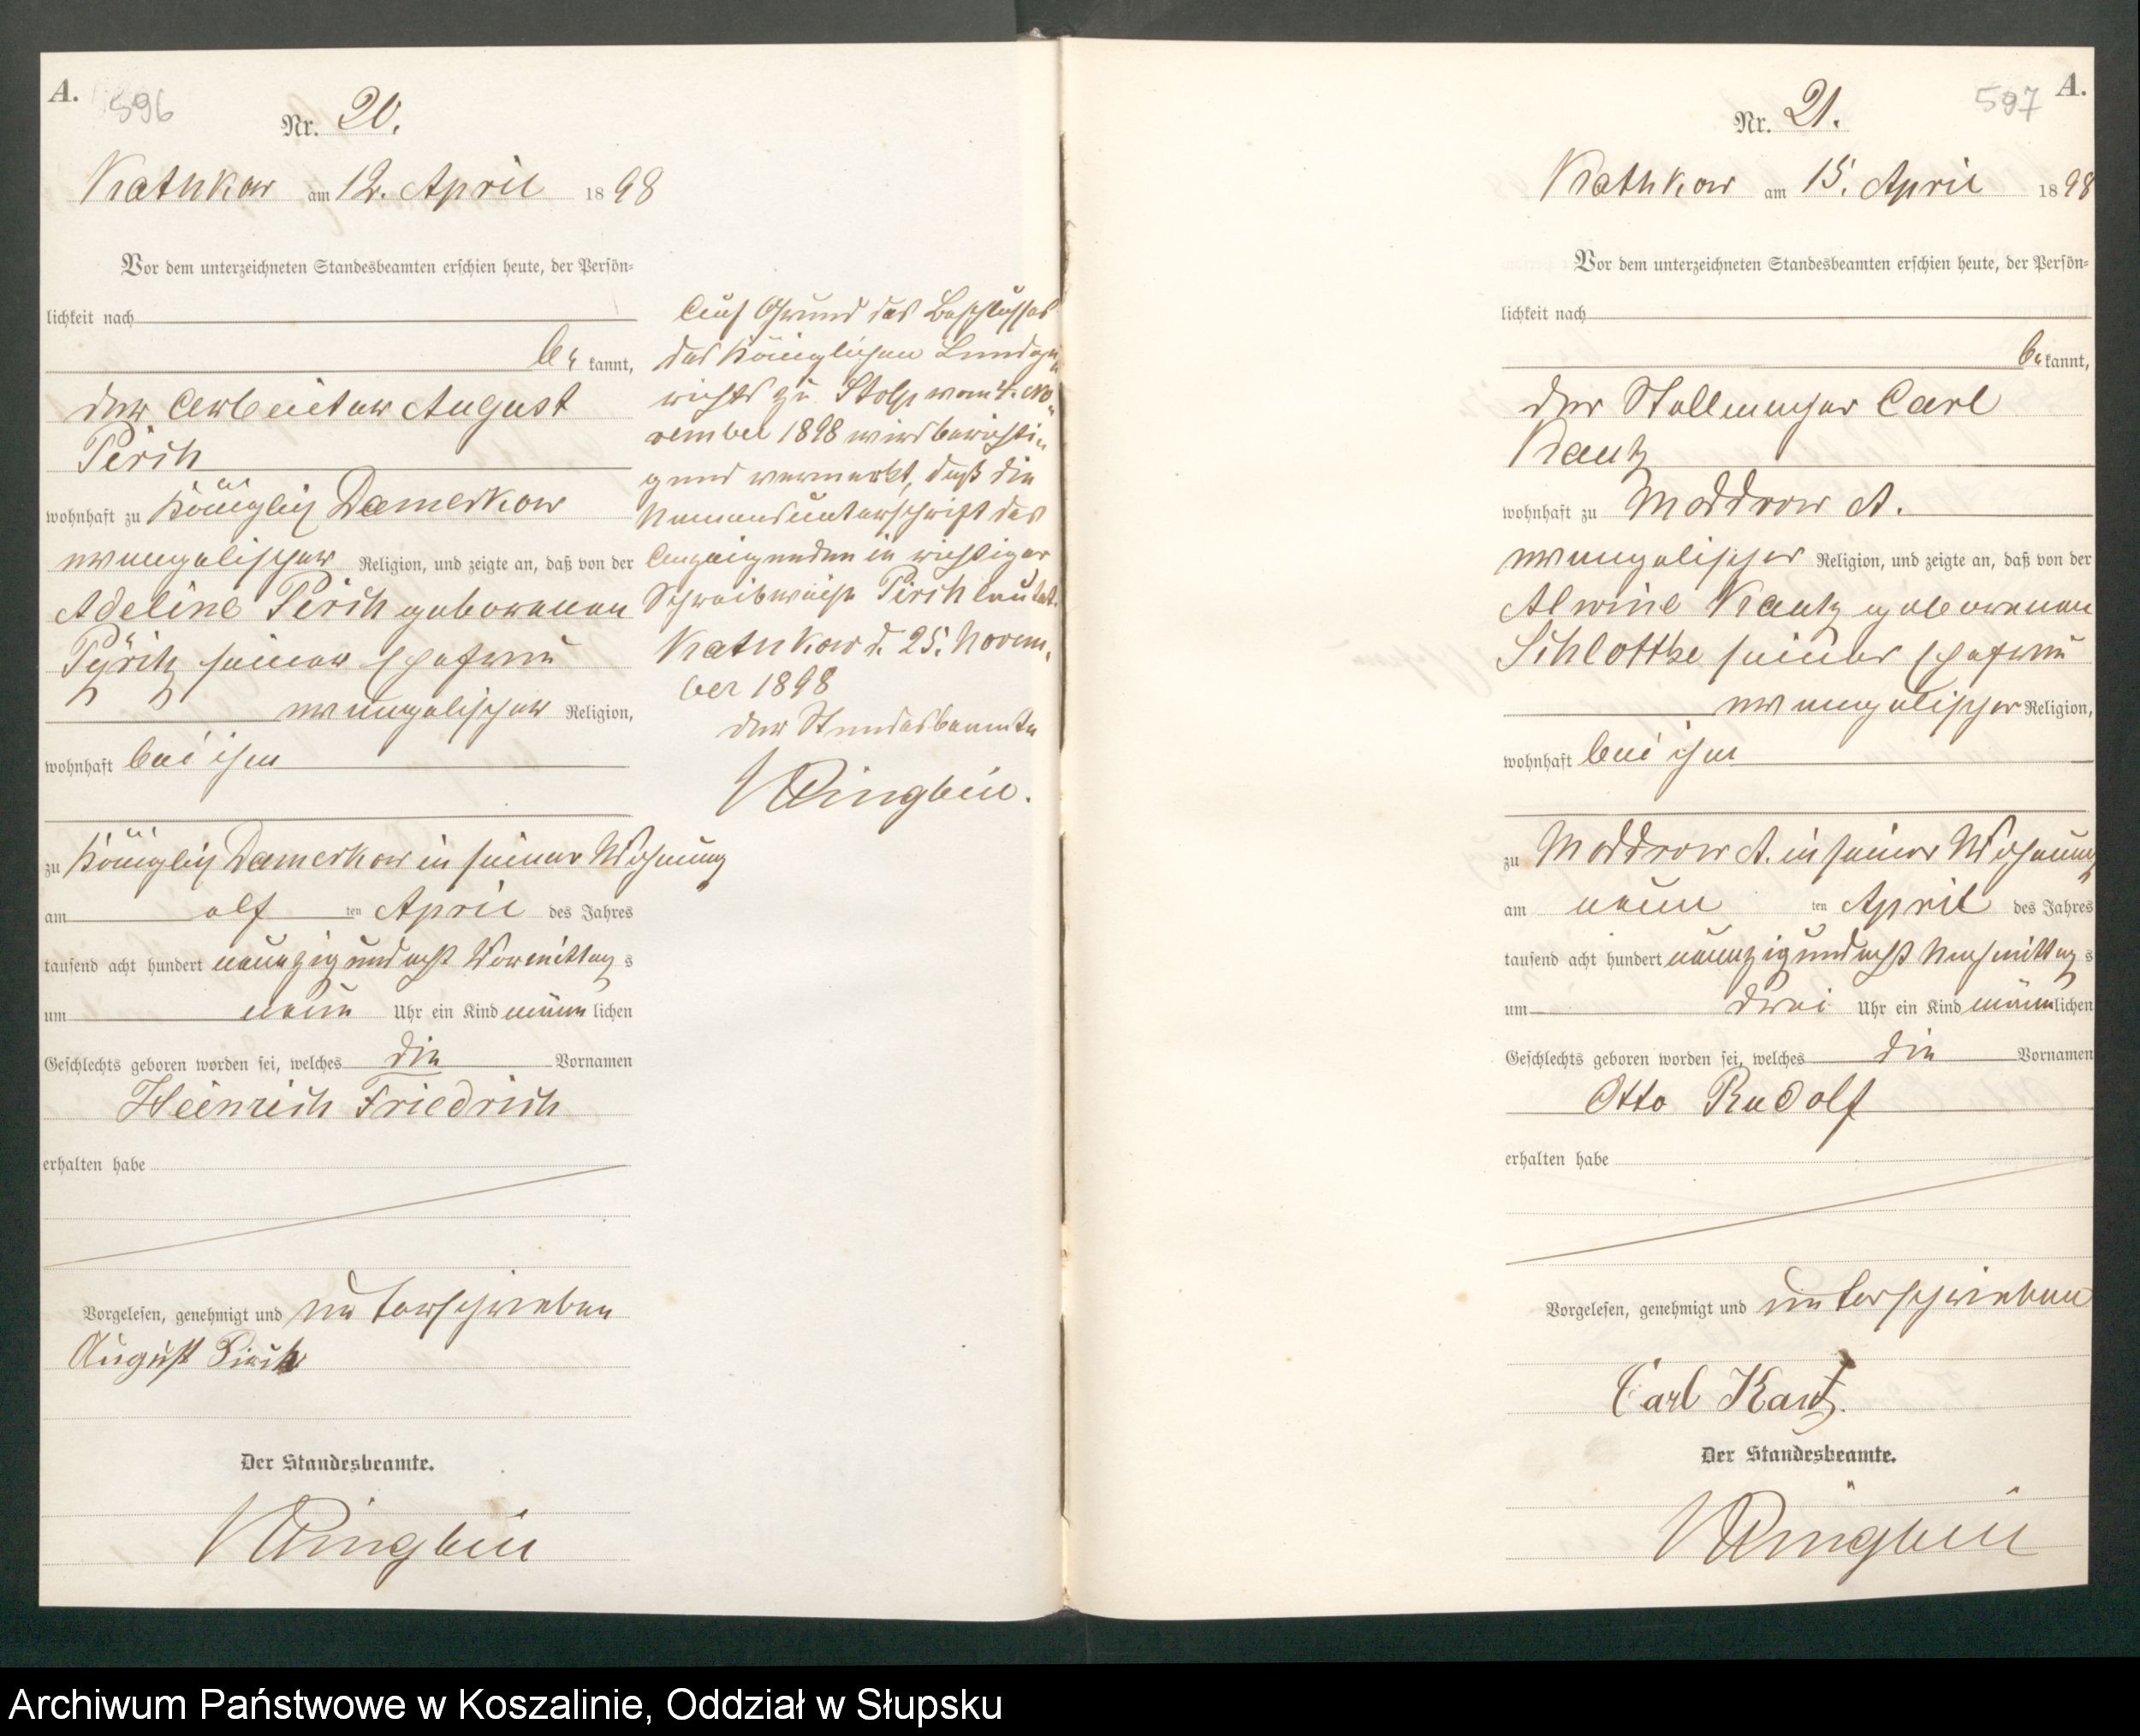 A.
596
Nr. 20.
Kathkow am 12. April 1898
Vor dem unterzeichneten Standesbeamten erschien heute, der Persön=
lichkeit nach
be kannt,
der Arbeiter August
Pirch
wohnhaft zu Königlich Damerkow
evangelischer Religion, und zeigte an, daß von der
Adeline Pirch geborenen
seiner Ehefrau
evangelischer Religion,
wohnhaft bei ihm
zu Königlich Damerkow in seiner Wohnung
am elf ten April des Jahres
tausend acht hundert neunzig und acht Vormittag s
um neun Uhr ein Kind männ lichen
Geschlechts geboren worden sei, welches die Vornamen
Heinrich Friedrich
erhalten habe
Vorgelesen, genehmigt und unterschrieben
August Pirch
Der Standesbeamte.
Auf Grund des Beschlusses
des Königlichen Landge=
richts zu Stolp vom 4. No=
vember 1898 wird berichti=
gend vermerkt, daß die
Namensunterschrift des
Anzeigenden in richtiger
Schreibweise Pirch lautet.
Kathkow d. 25. Novem=
ber 1898
Der Standesbeamte
A.
597
Nr. 21.
Kathkow am 15. April 1898
Vor dem unterzeichneten Standesbeamten erschien heute, der Persön=
lichkeit nach
be kannt,
der Stellmacher Carl
Kautz
wohnhaft zu Moddrow A.
evangelischer Religion, und zeigte an, daß von der
Alwine Kautz geborenen
Schlottke seiner Ehefrau
evangelischer Religion,
wohnhaft bei ihm
zu Moddrow A. in seiner Wohnung
am neun ten April des Jahres
tausend acht hundert neunzig und acht Nachmittag s
um drei Uhr ein Kind männ lichen
Geschlechts geboren worden sei, welches die Vornamen
Otto Rudolf
erhalten habe
Vorgelesen, genehmigt und unterschrieben
Carl Kautz.
Der Standesbeamte.
Archiwum Państwowe w Koszalinie, Oddział w Słupsku